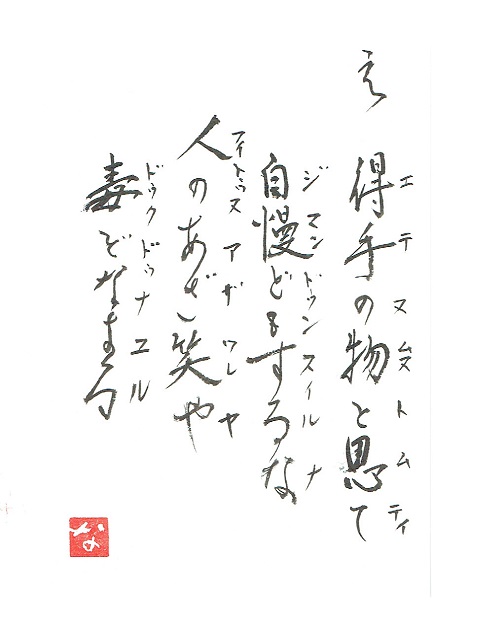 え
得手の物と思て
エテヌムヌトムティ
自慢どもするな
ジマンドゥンスィルナ
人のあざ笑や
フィトゥヌアザワレヤ
毒どなよる
ドゥクドゥナユル
な